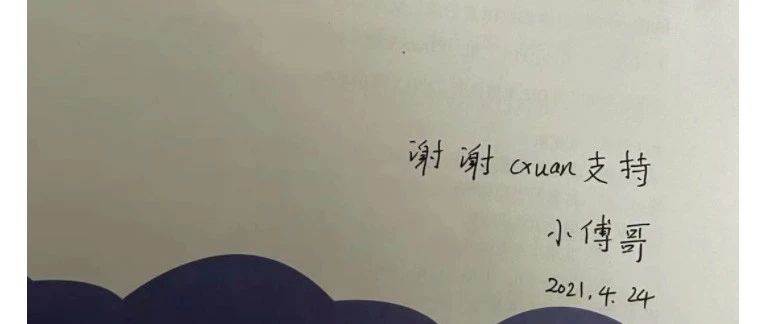 谢谢 cxuan 支持
小傅哥
2021.4.24